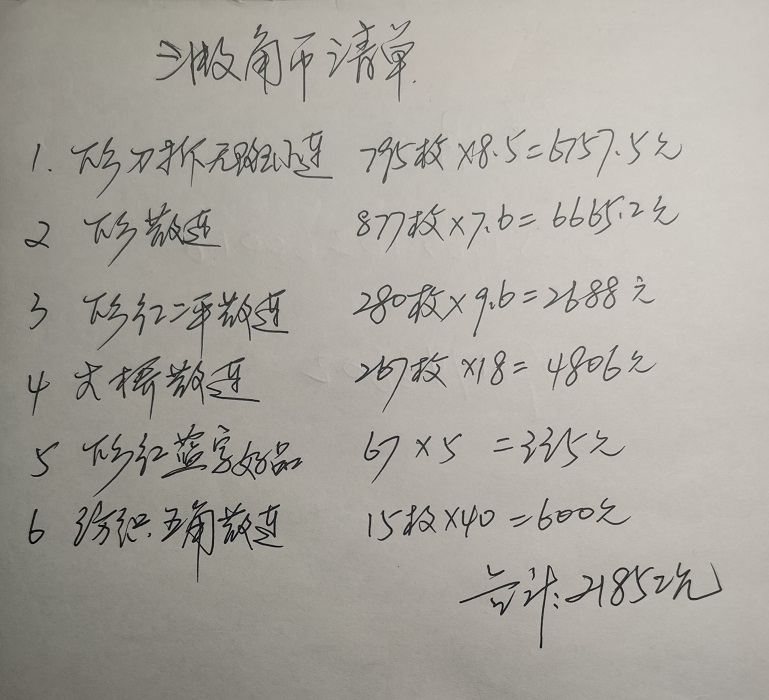 三版角币清单
1. 下乡刀拆无斑小连 795枚×8.5=6757.5元
2 下乡散连 877枚×7.6=6665.2元
3 下乡红二平散连 280枚×9.6=2688元
4 大桥散连 267枚×18=4806元
5 下乡红蓝字好品 67×5=335元
6 纺织五角散连 15枚×40=600元
合计:21852元